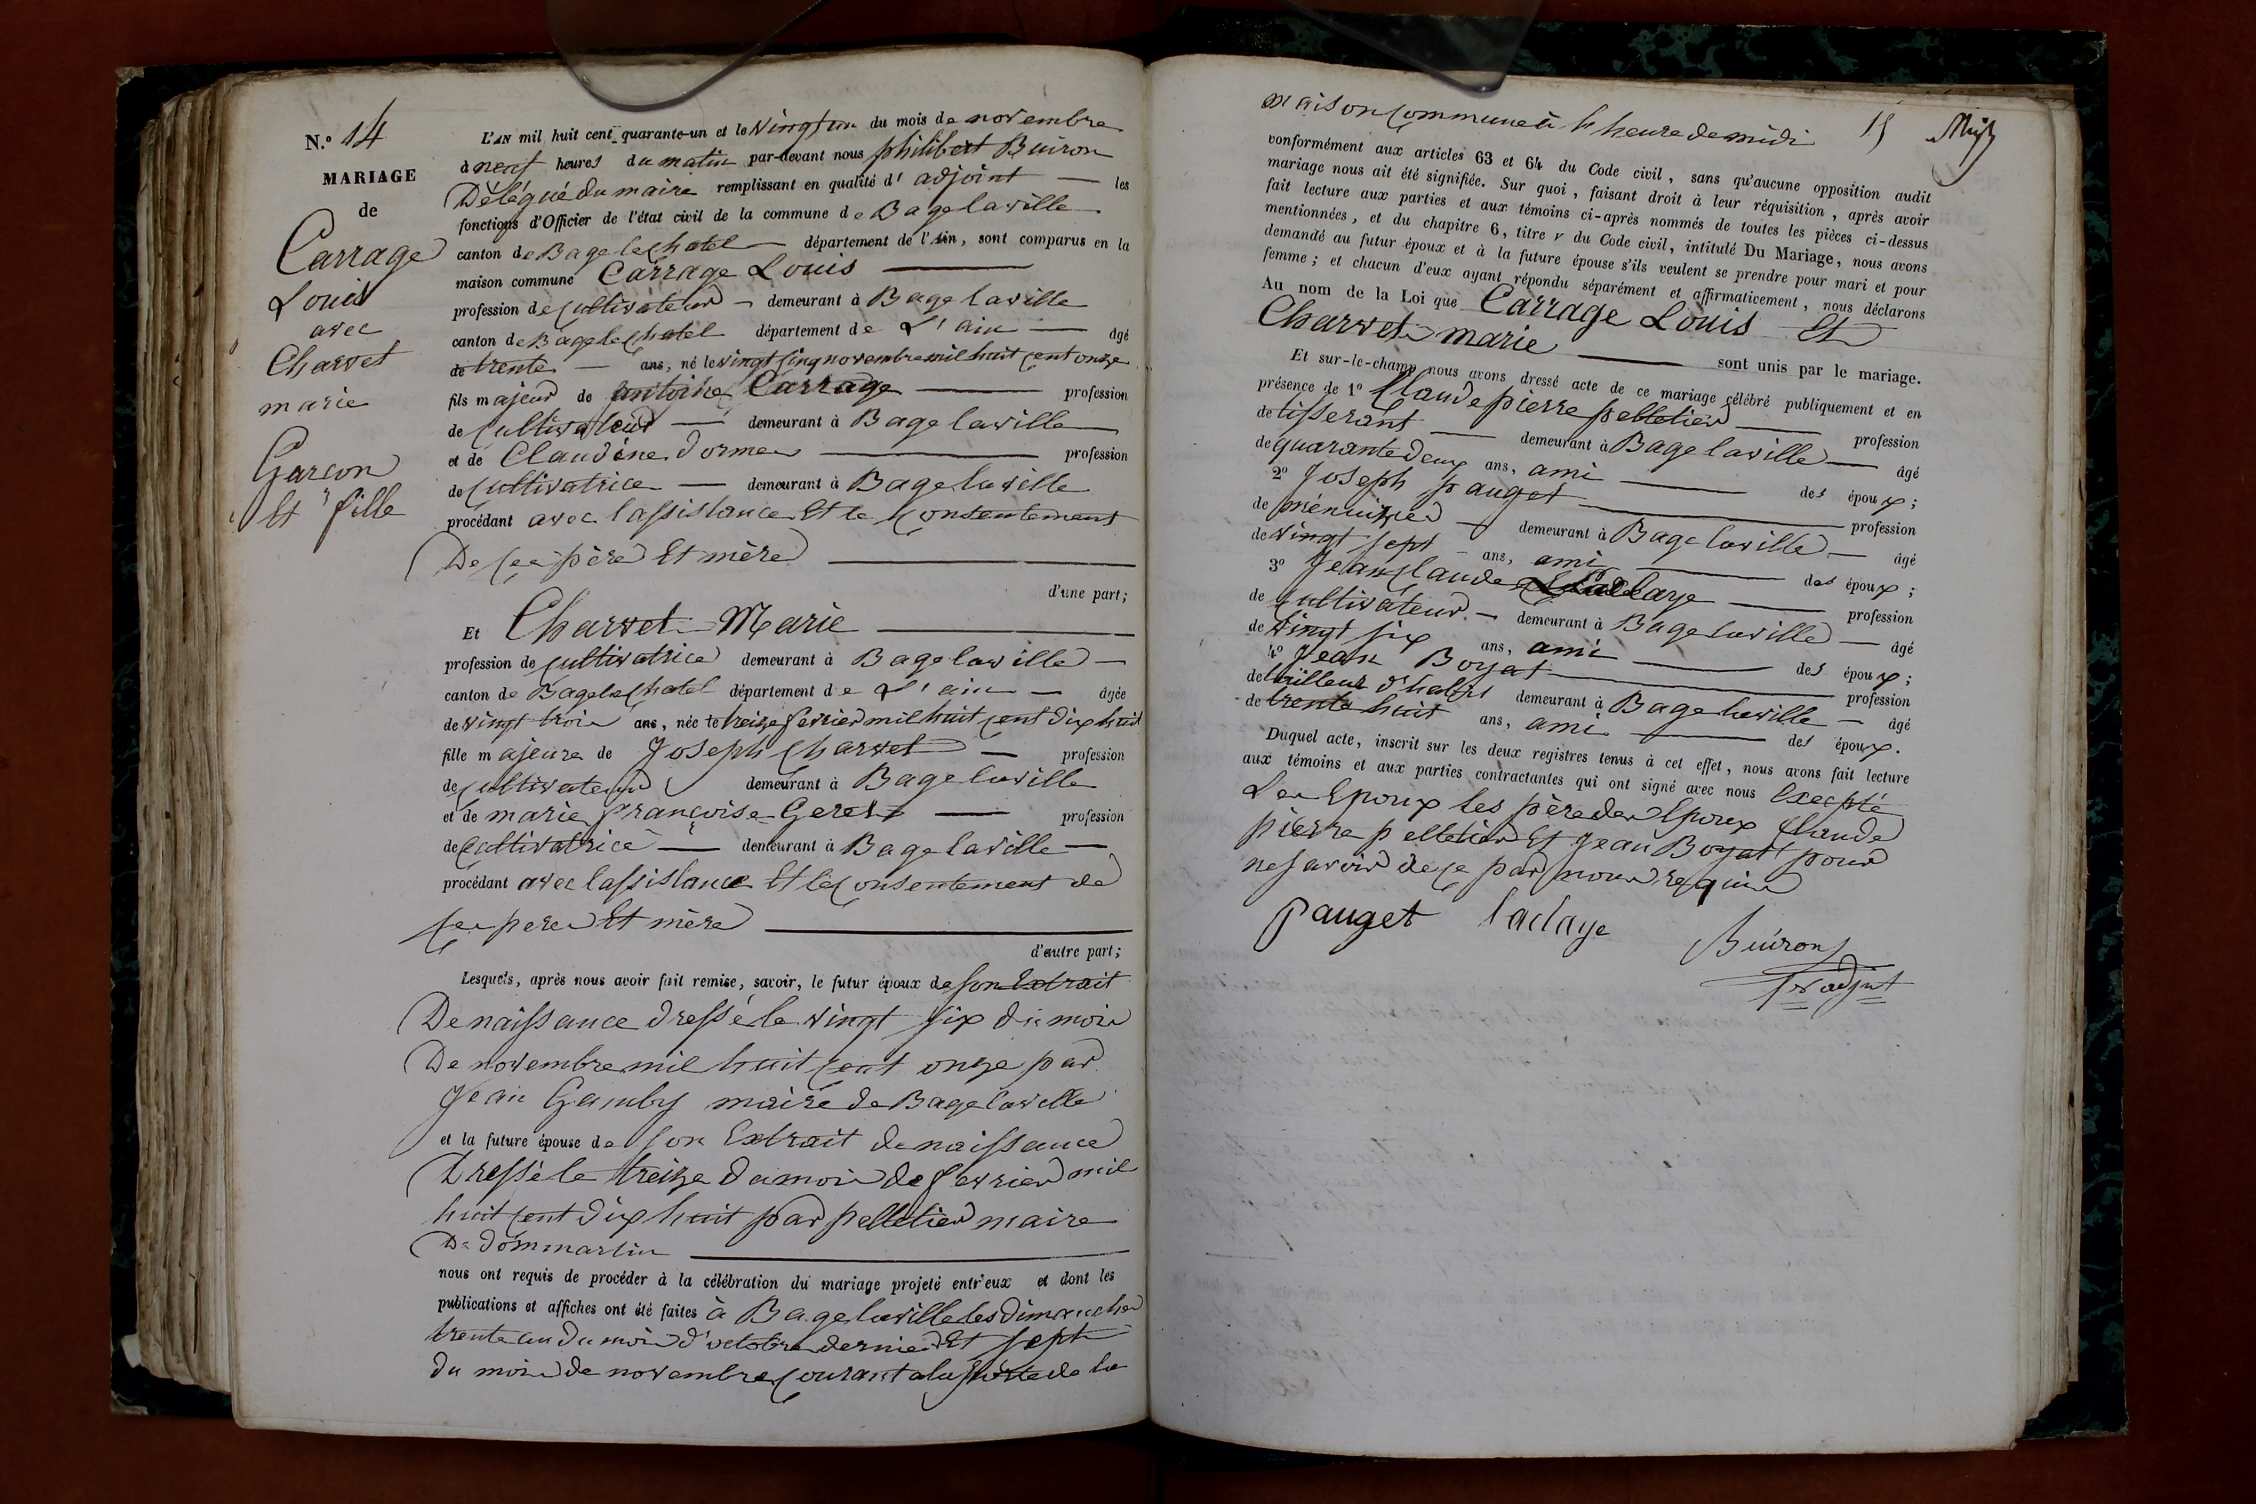 N.º 14
MARIAGE
de
Carrage
Louis
avec
Charvet
marie
Garcon
Et fille
L'AN mil huit cent quarante-un et le Vingt un du mois de novembre
à neuf heures du matin par-devant nous philibert Buiron
Délégué du maire remplissant en qualité d' adjoint les
fonctions d'Officier de l'état civil de la commune de Bagelaville
canton de Bagelechatel département de l'Ain, sont comparus en la
maison commune Carrage Louis
profession de cultivateur demeurant à Bagelaville
canton de Bagelechatel département de L'ain âgé
de trente ans, né le vingt cinq novembre mil huit cent onze
fils majeur de antoine Carrage profession
de Cultivateur demeurant à Bagelaville
et de Claudine Dorme profession
de Cultivatrice demeurant à Bagelaville
procédant avec lassistance Et le Consentement
De ses père Et mère
d'une part;
Et Charvet Marie
profession de cultivatrice demeurant à Bagelaville
canton de Bagelechatel département de L'ain âgée
de vingt trois ans, née le treize fevrier mil huit cent dix huit
fille majeure de Joseph Charvet profession
de cultivateur demeurant à Bagelaville
et de marie françoise Geret profession
de Cultivatrice demeurant à Bagelaville
procédant avec lassistance Et le Consentement de
ses pere Et mère
d'autre part;
Lesquels, après nous avoir fait remise, savoir, le futur époux de son Extrait
De naissance dressé le vingt six du mois
De novembre mil huit cent onze par
Jean Gamby maire de Bagelaville
et la future épouse de son Extrait de naissance
Dressé le treize du mois de fevrier mil
huit cent dix huit par pelletier maire
De dommartin
nous ont requis de procéder à la célébration du mariage projeté entr'eux et dont les
publications et affiches ont été faites à Bagelaville les Dimanches
trente un du mois d'octobre dernier Et sept
du mois de novembre courant a la porte de la
maison Commune à l'heure de midi 15
conformément aux articles 63 et 64 du Code civil, sans qu'aucune opposition audit
mariage nous ait été signifiée. Sur quoi, faisant droit à leur réquisition, après avoir
fait lecture aux parties et aux témoins ci-après nommés de toutes les pièces ci-dessus
mentionnées, et du chapitre 6, titre v du Code civil, intitulé Du Mariage, nous avons
demandé au futur époux et à la future épouse s'ils veulent se prendre pour mari et pour
femme; et chacun d'eux ayant répondu séparément et affirmativement, nous déclarons
Au nom de la Loi que Carrage Louis Et
Charvet marie sont unis par le mariage.
Et sur-le-champ nous avons dressé acte de ce mariage célébré publiquement et en
présence de 1º Claude pierre pelletier profession
de tisserant demeurant à Bagelaville âgé
de quarante deux ans, ami des époux;
2º Joseph pauget profession
de menuizier demeurant à Bagelaville âgé
de vingt sept ans, ami des époux;
3º Jean Claude Laclaye profession
de cultivateur demeurant à Bagelaville âgé
de vingt six ans, ami des époux;
4º Jean Boyat profession
de tailleur d'habit demeurant à Bagelaville âgé
de trente huit ans, ami des époux.
Duquel acte, inscrit sur les deux registres tenus à cet effet, nous avons fait lecture
aux témoins et aux parties contractantes qui ont signé avec nous Excepté
Les Epoux les père des Epoux Claude
pierre pelletier Et Jean Boyat pour
ne savoir de ce par nous requis
Pauget laclaye
Buiron